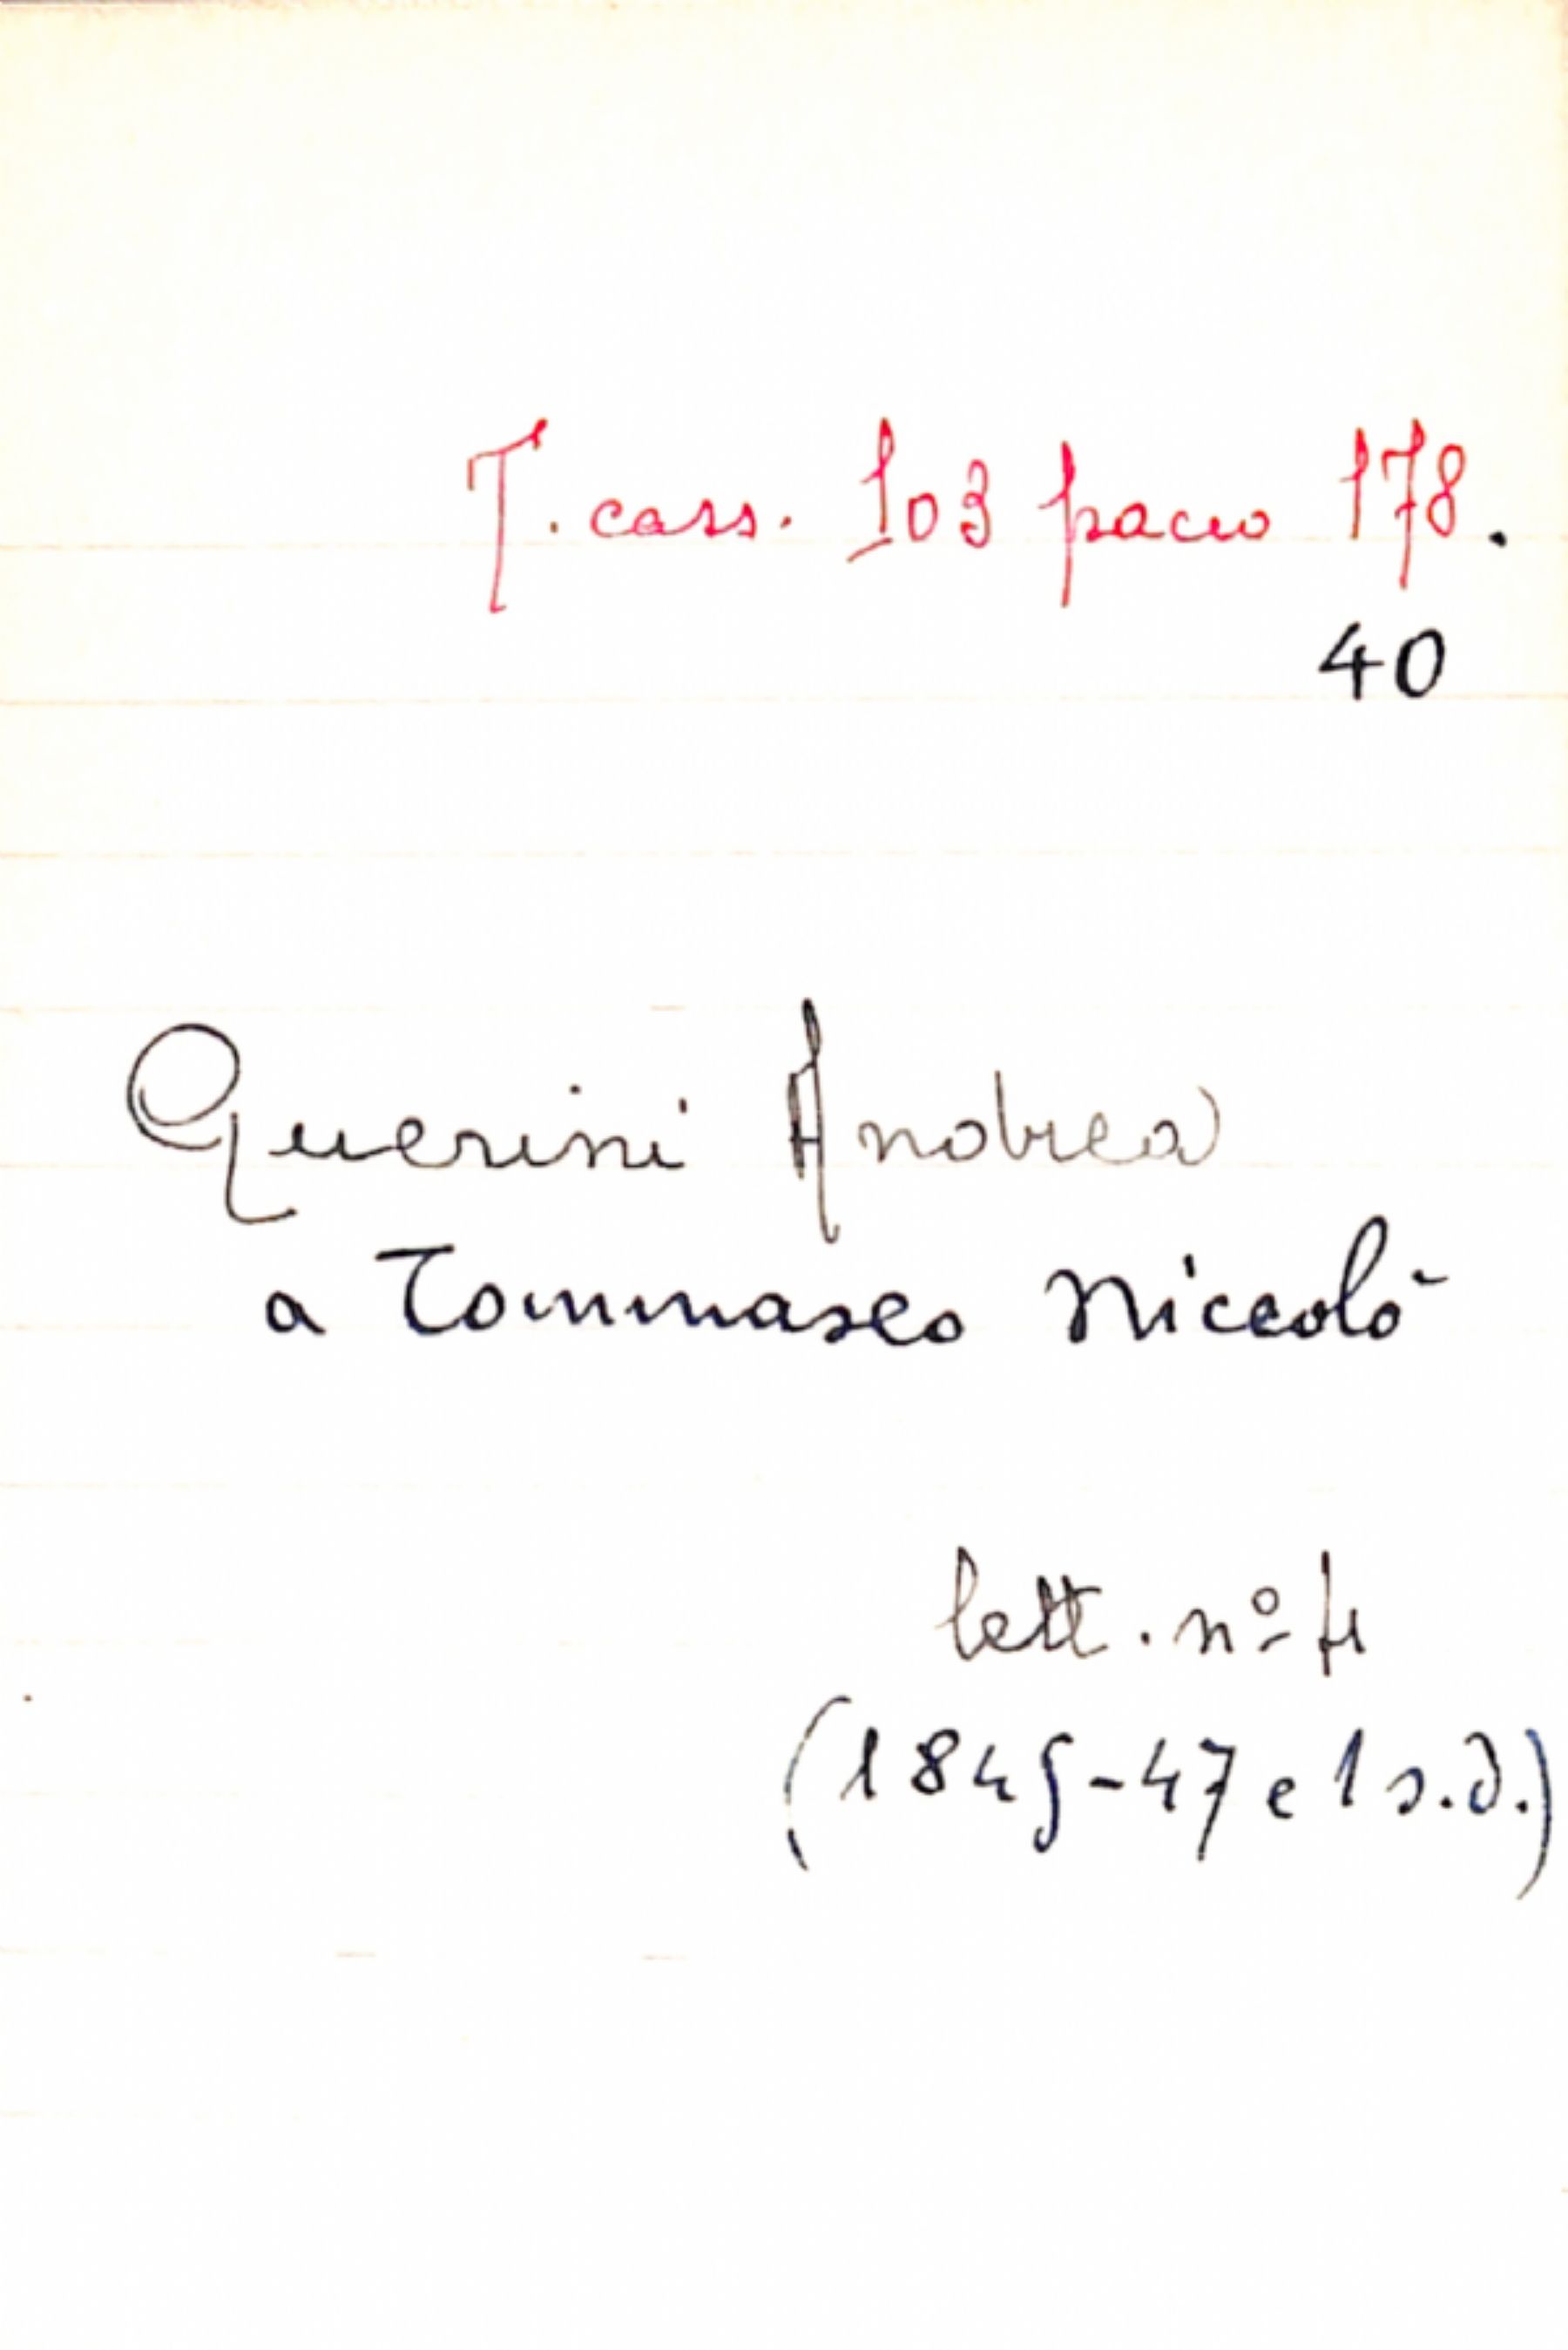 T. cass. 103 pacco 178.
40
Querini Andrea
a Tommaseo Niccolò
lett. nº 4
(1845-47 e 1 s.d.)